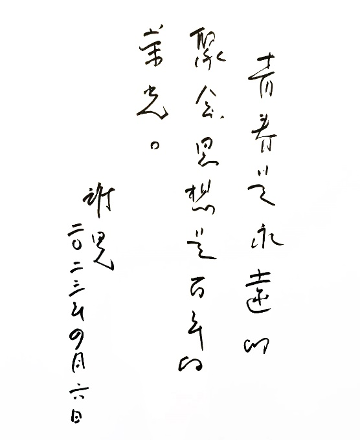 青春是永遠的
聚会思想是百年的
荣光。
谢冕
二〇二三年四月六日